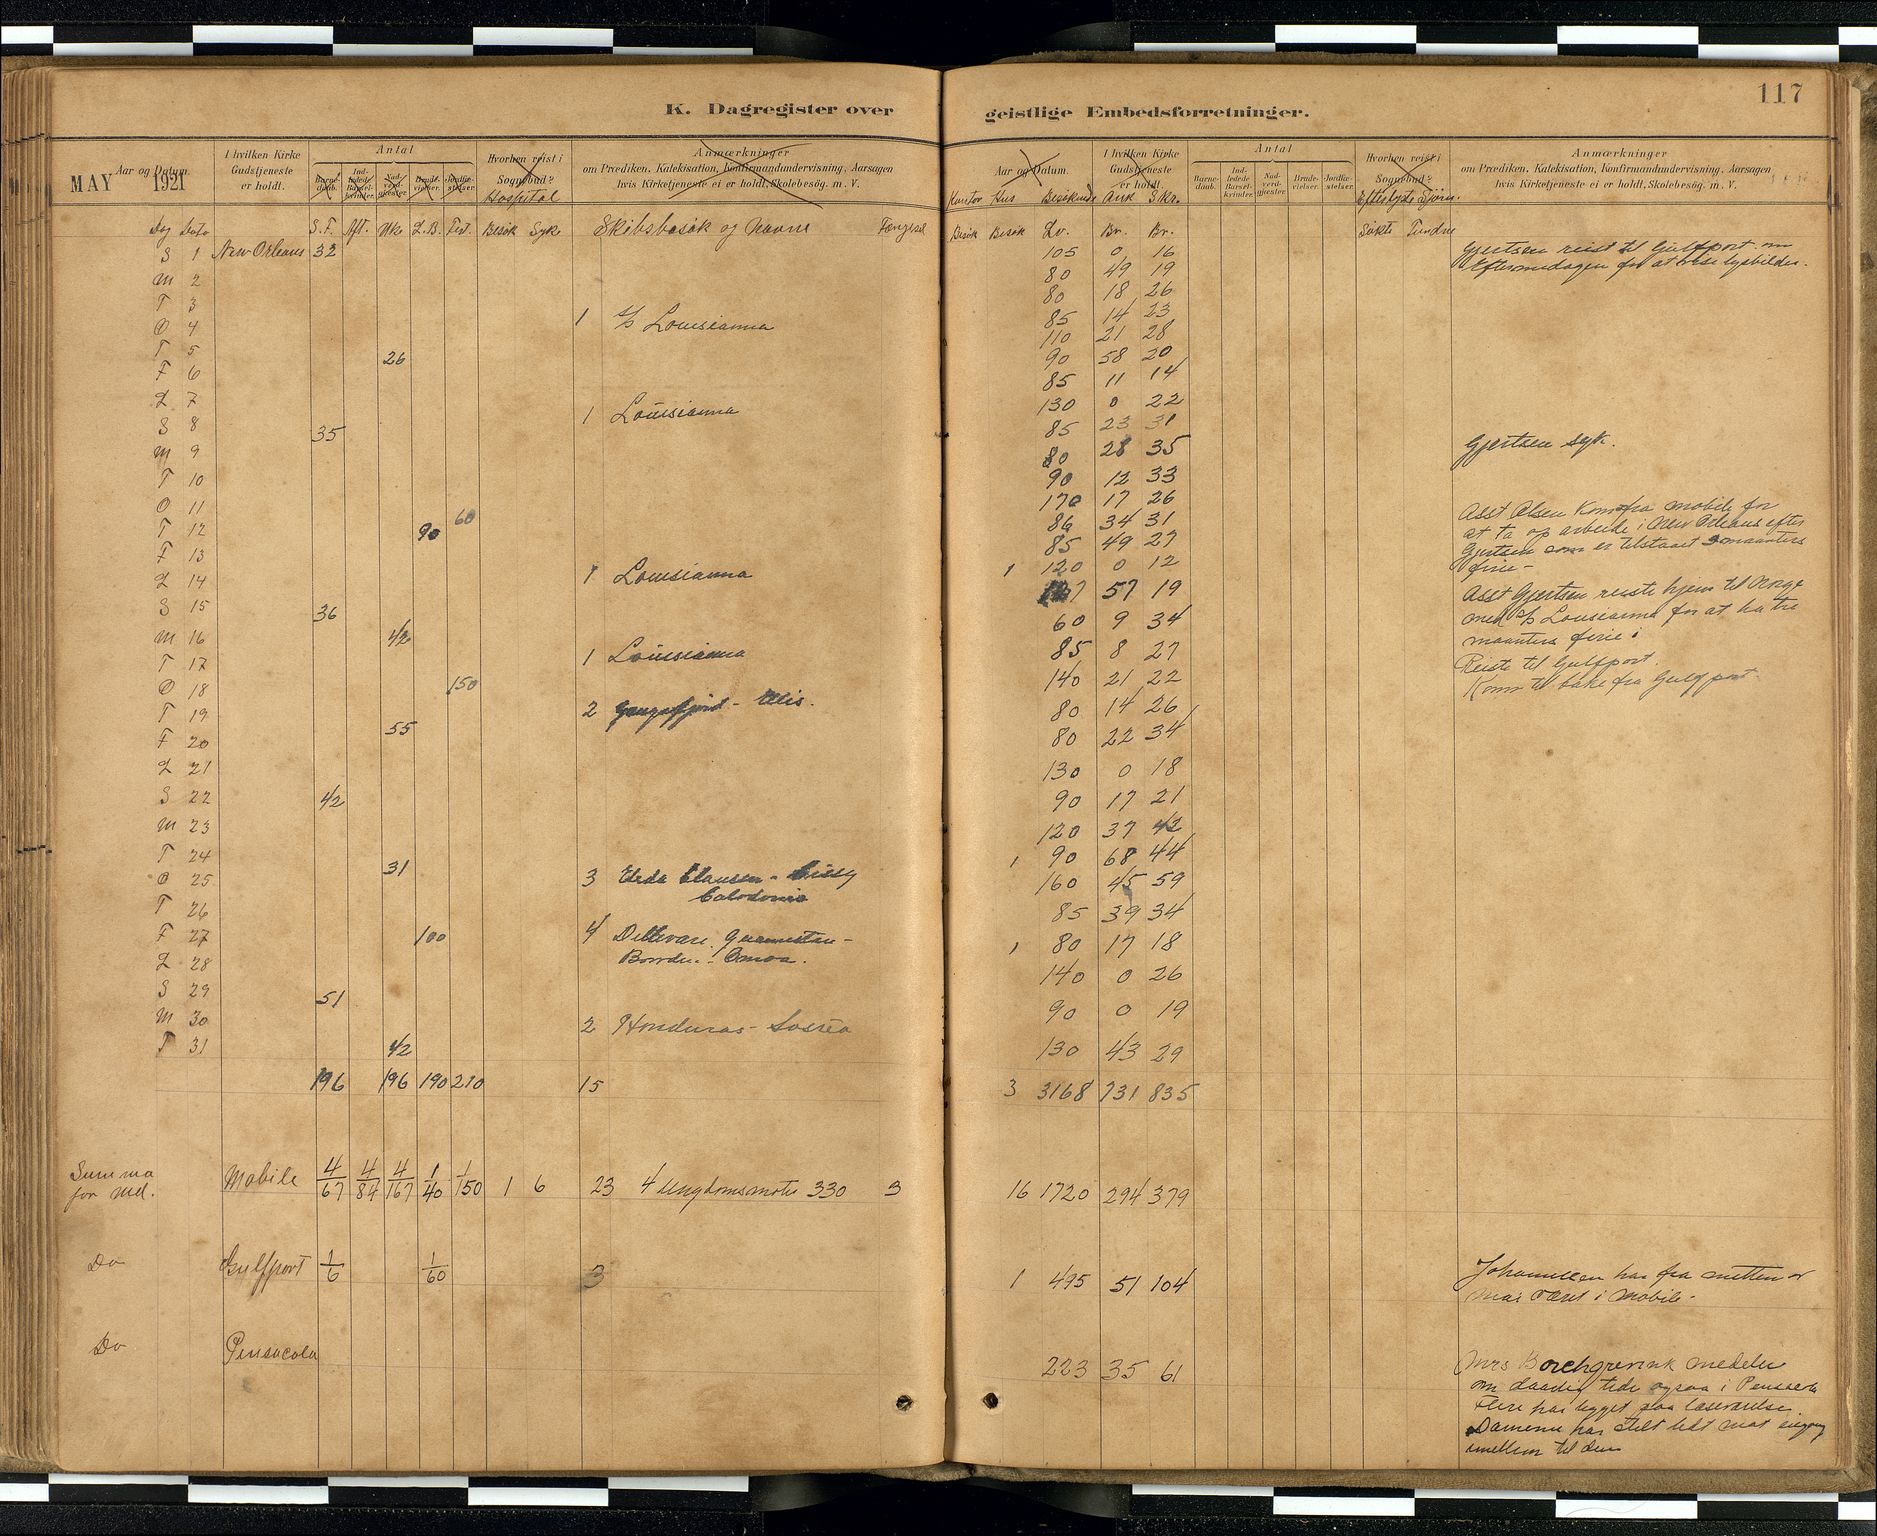 117
K. Dagregister over geistlige Embedsforretninger.
MAY 1921
Aar og Datum.
I hvilken Kirke Gudstjeneste er holdt.
Antal
Barnedaab. Indledede Barselkvinder. Nadverdgjester. Brudevielser. Jordfæstelser.
Hvorhen reist i Sognebud?
Hospital
Anmærkninger
om Prædiken, Katekisation, Konfirmandundervisning, Aarsagen
hvis Kirketjeneste ei er holdt, Skolebesøg. m. V.
Dag Dato S.F. Aft. Uke L.B. Fest. Besøk Syke Skibsbesøk og Navne Fængsel
S 1 New Orleans 32
M 2
T 3
O 4 1 S/S Louisianna
T 5 26
F 6
L 7
S 8 35 1 Louisianna
M 9
T 10
O 11
T 12 90 60
F 13
L 14 1 Louisianna
S 15 36
M 16 42
T 17 1 Louisianna
O 18 150
T 19 2
F 20 55
L 21
S 22 42
M 23
T 24 31
O 25 3 Clausen - Sissy
T 26
F 27 100 4
L 28 Omoa.
S 29 51
M 30 2 Honduras -
T 31 42
196 196 190 210 15
Summa for Md. Mobile 4/67 4/84 4/167 1/40 1/150 1 6 23 4 Ungdomsmøte 330 3
Do Gulfport 1/6 1/60 3
Do Pensacola
Aar og Datum.
I hvilken Kirke Gudstjeneste er holdt.
Antal
Barnedaab. Indledede Barselkvinder. Nadverdgjester. Brudevielser. Jordfæstelser.
Hvorhen reist i Sognebud?
Anmærkninger
om Prædiken, Katekisation, Konfirmandundervisning, Aarsagen
hvis Kirketjeneste ei er holdt, Skolebesøg. m. V.
Kontor Hus Besøkende Ank Skr. Efterlyste Sjøm.
Besøk Besøk Lv. Br. Br. Søkte Fundne
105 0 16
80 49 19
80 18 26
85 14 23
110 21 28
90 58 20
85 11 14
130 0 22
85 23 31
80 28 35
90 12 33
170 17 26
86 34 31
85 49 27
1 120 0 12
57 19
60 9 34
85 8 27
140 21 22
80 14 26
80 22 34
130 0 18
90 17 21
120 37 42
1 90 68 44
160 45 59
85 39 34
1 80 17 18
140 0 26
90 0 19
130 43 29
3 3168 731 835
16 1720 294 379
1 495 51 104
223 35 61
Gjertsen reist til Gulfport om
Eftermidagen for at vise lysbilder.
Gjertsen syk.
Asst Olsen Kom fra Mobile for
at ta op arbeide i New Orleans efter
Gjertsen som er tilstaaet 3 maanters
ferie -
Asst Gjertsen reiste hjem til Norge
med S/S Louisianna for at ha tre
maanters ferie i
Reiste til Gulfport.
Kom til bake fra Gulfport.
Johannesen har fra mitten av
mai været i Mobile -
Mrs Borchgrevink medeler
om daarlig tide ogsaa i Pensacola
Flere har ligget paa læseværelse
Damerne har stelt litt mat
imellem til dem